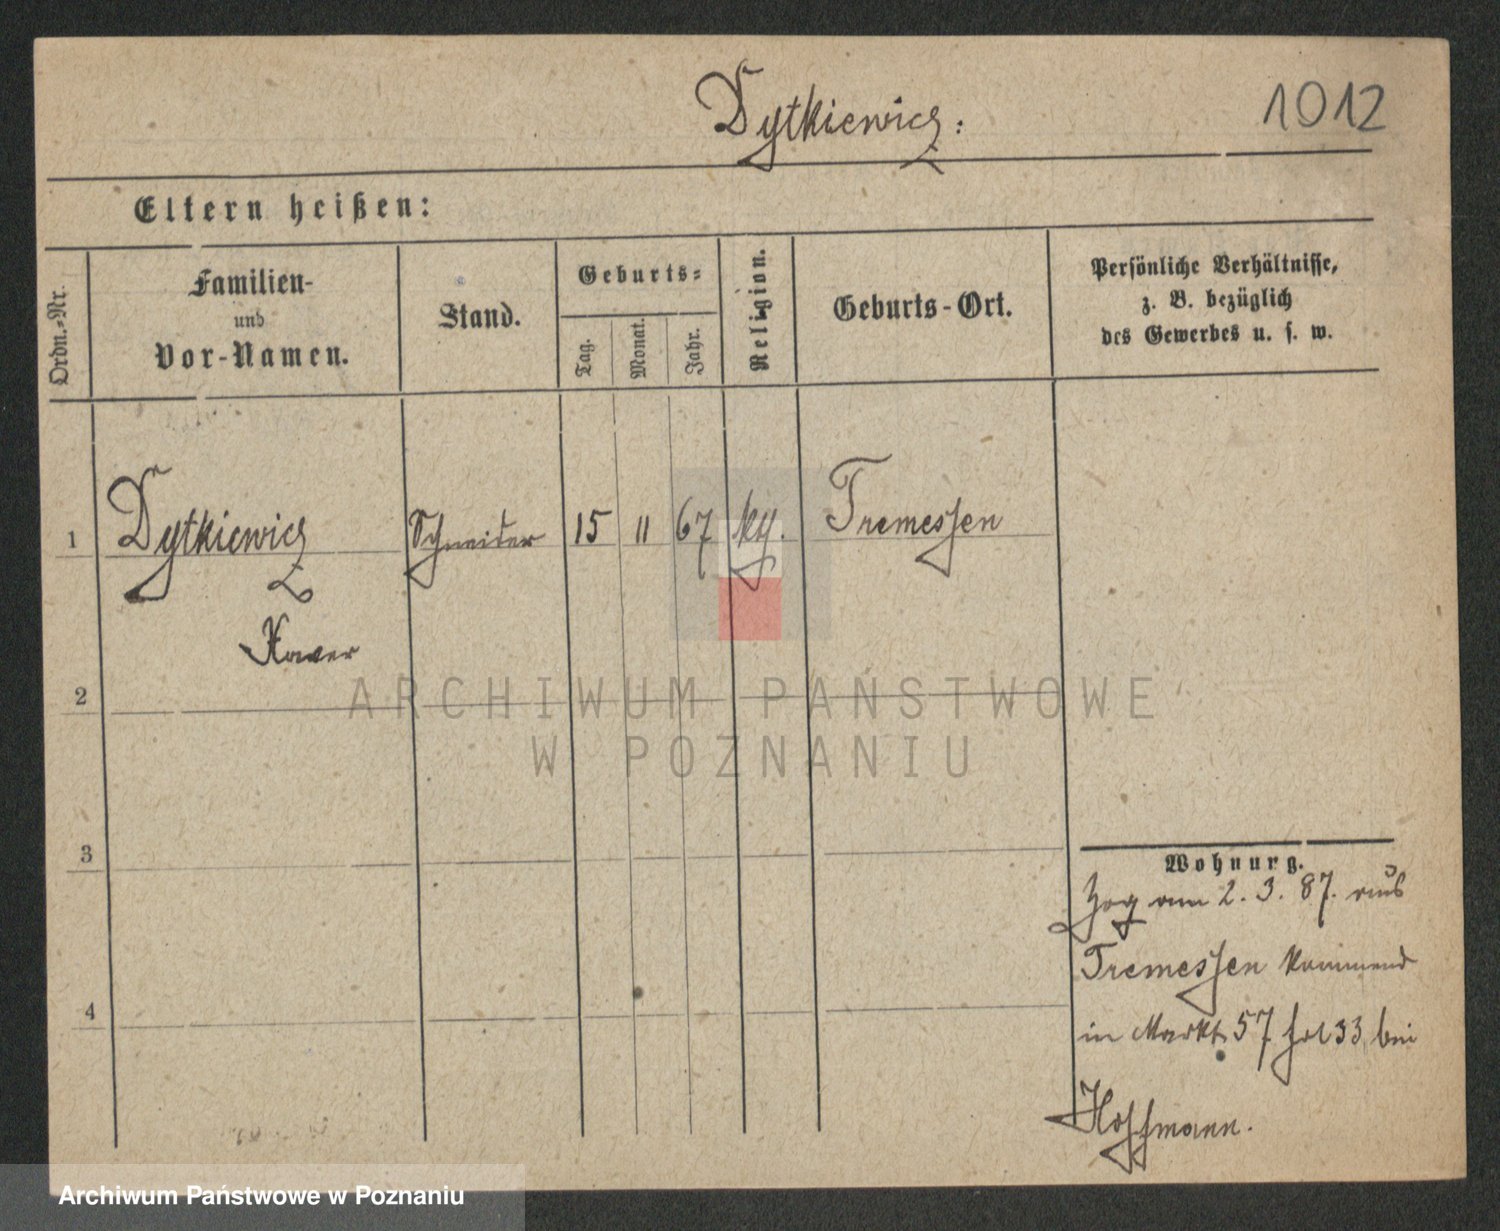 Dytkiewicz:
1012
Eltern heißen:
Ordn.-Nr.
Familien-
und
Vor-Namen.
Stand.
Geburts-
Tag.
Monat.
Jahr.
Religion.
Geburts-Ort.
Persönliche Verhältnisse,
z. B. bezüglich
des Gewerbes u. s. w.
1 Dytkiewicz Schneider 15 11 67 kth. Tremessen
Xaver
2
ARCHIWUM PAŃSTWOWE
W POZNANIU
3
Wohnung.
Zog am 2. 3. 87. aus
Tremessen kommend
4
in Markt 57 33 bei
Hoffmann.
Archiwum Państwowe w Poznaniu